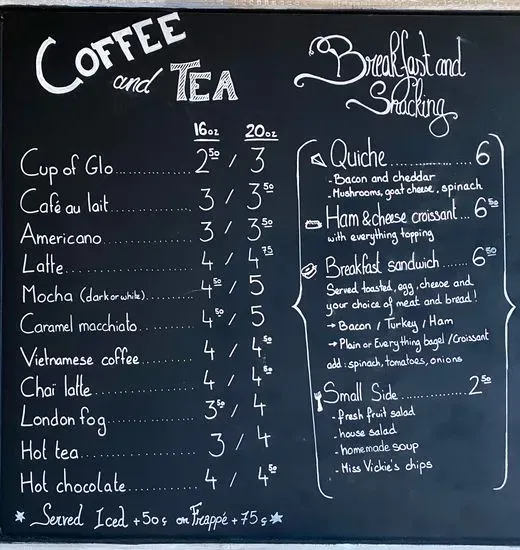 COFFEE
and TEA
16oz 20oz
Cup of Glo.......... 2.50 / 3
Café au lait.......... 3 / 3.50
Americano.......... 3 / 3.50
Latte.......... 4 / 4.75
Mocha (dark or white)..... 4.50 / 5
Caramel macchiato..... 4.50 / 5
Vietnamese coffee..... 4 / 4.50
Chai latte.......... 4 / 4.50
London fog.......... 3.50 / 4
Hot tea.......... 3 / 4
Hot chocolate.......... 4 / 4.50
Served Iced +50¢ or Frappé +75¢
Breakfast and
Snacking
Quiche.......... 6
- Bacon and cheddar
- Mushrooms, goat cheese, spinach
Ham & cheese croissant... 6.50
with everything topping
Breakfast sandwich....... 6.50
Served toasted, egg, cheese and
your choice of meat and bread!
→ Bacon / Turkey / Ham
→ Plain or Everything bagel / Croissant
add: spinach, tomatoes, onions
Small Side.......... 2.50
- fresh fruit salad
- house salad
- homemade soup
- Miss Vickie's chips